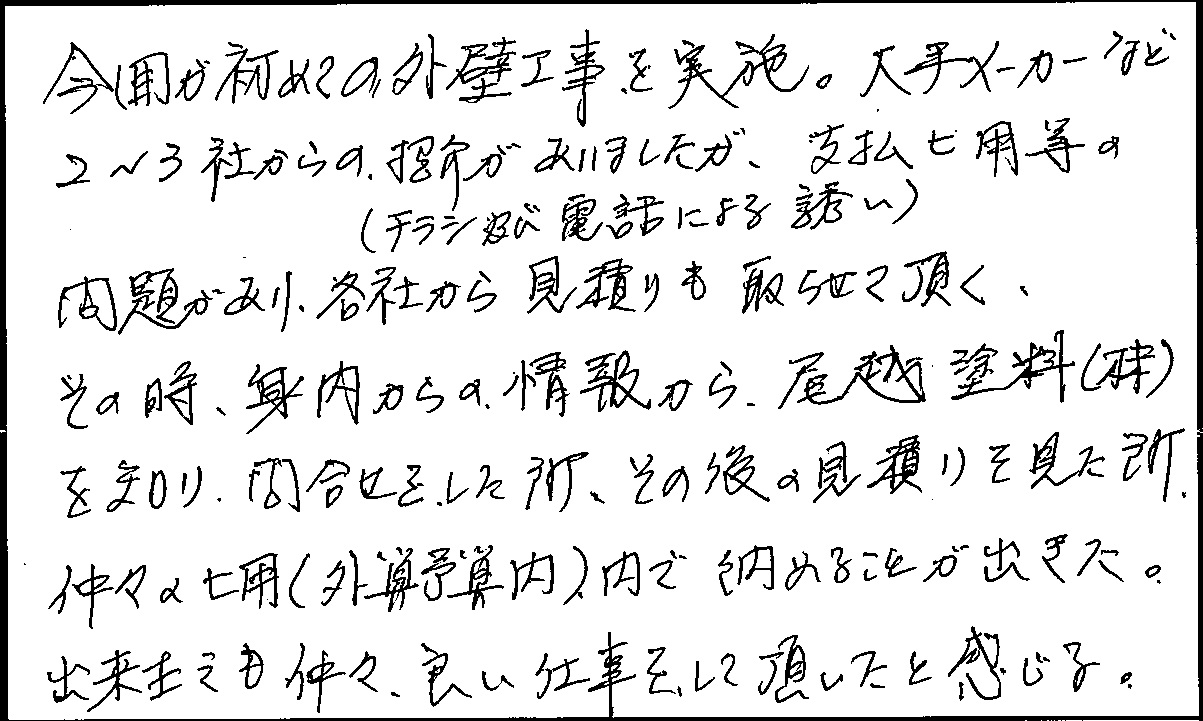 今回が初めての外壁工事を実施。大手メーカーなど
2〜3社からの、招介がありましたが、支払ヒ用等の
(チラシ及び電話による誘い)
問題があり、各社から見積りも取らせて頂く、
その時、身内からの、情報から、尾越塗料(株)
を知り、問合せをした所、その後の見積りを見た所、
仲々のヒ用(外算予算内)内で納めることが出きた。
出来まえも仲々、良い仕事をして頂いたと感じる。